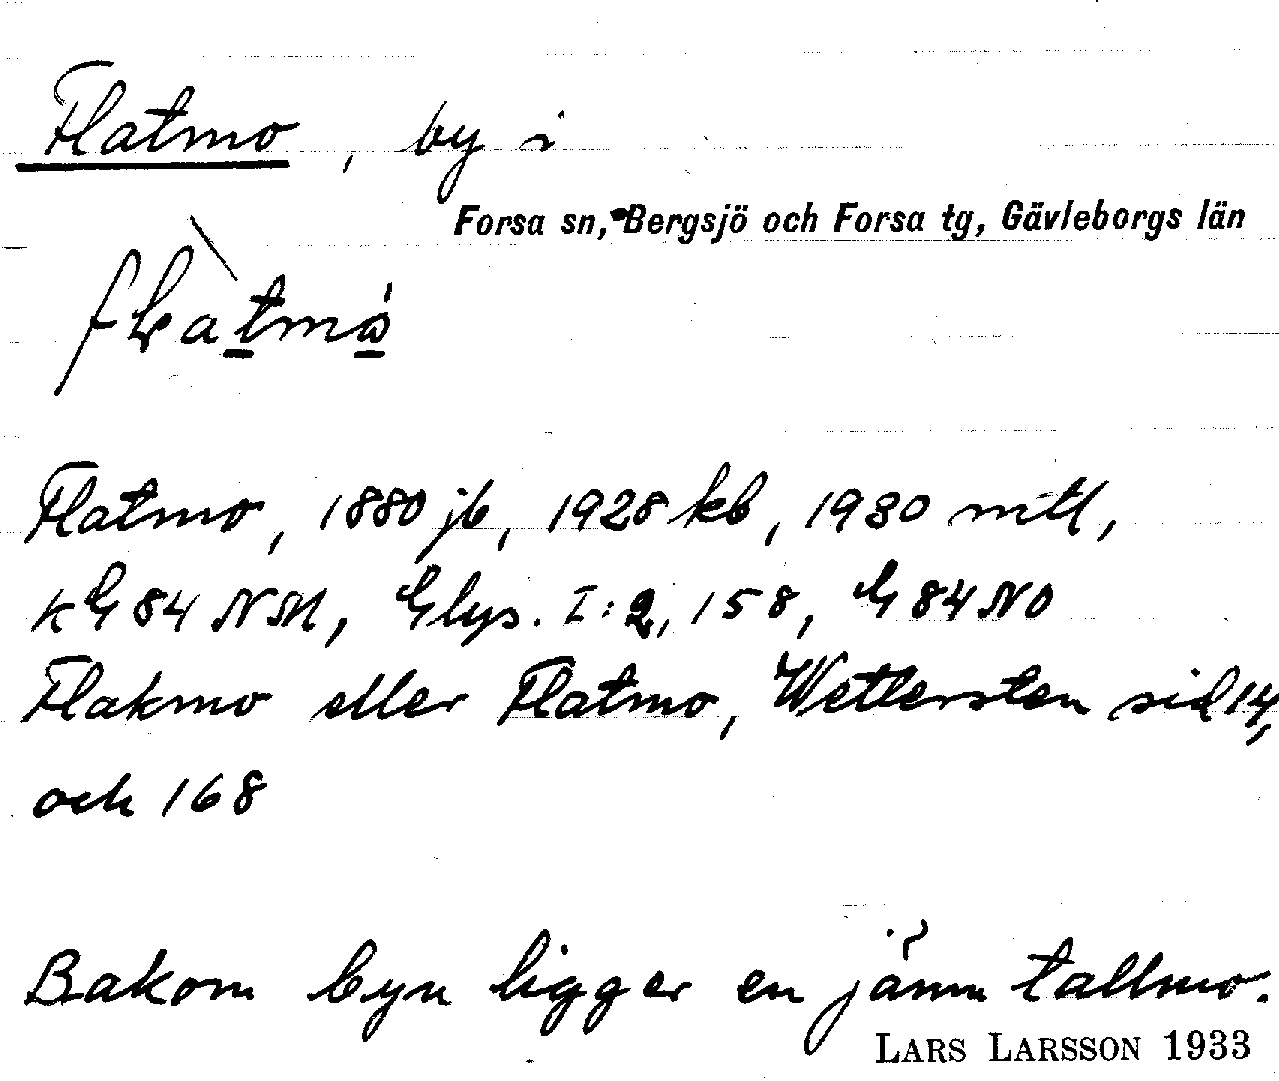 Flatmo, by i
Forsa sn, Bergsjö och Forsa tg, Gävleborgs län
Flatmo, 1880 jb, 1928 kb, 1930 mtl,
kG 84 NM, Glys. I:2, 158, G 84 NO
Flakmo eller Flatmo, Wettersten sid 14,
och 168
Bakom byn ligger en jämn tallmo.
LARS LARSSON 1933